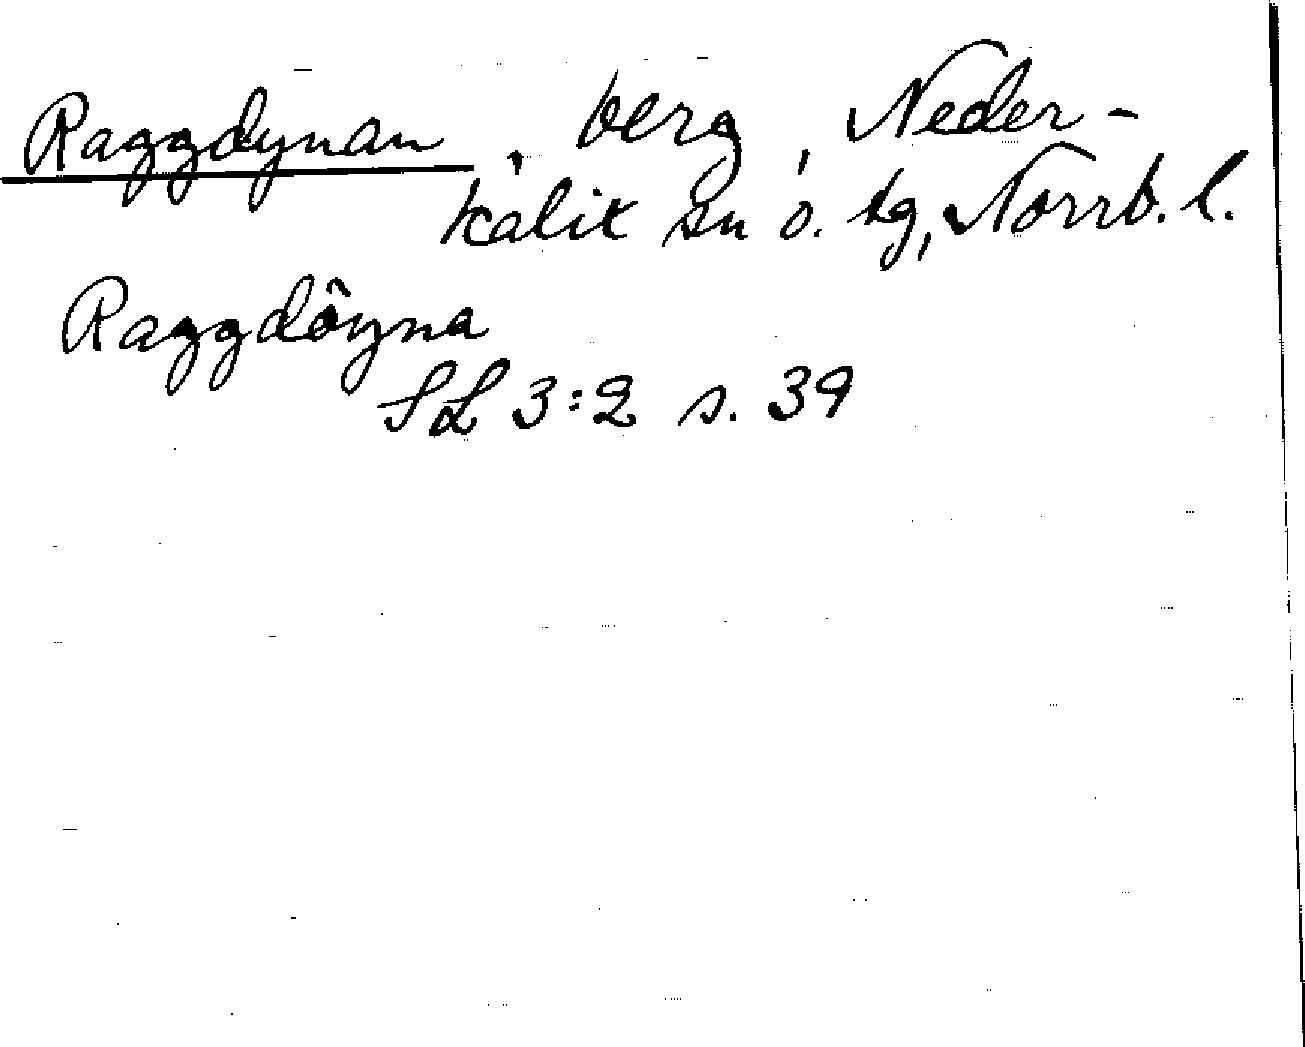 Raggdynan, berg, Neder-
kalix sn o. tg, Norrb. l.
Raggdôyna
SL 3:2 s. 39